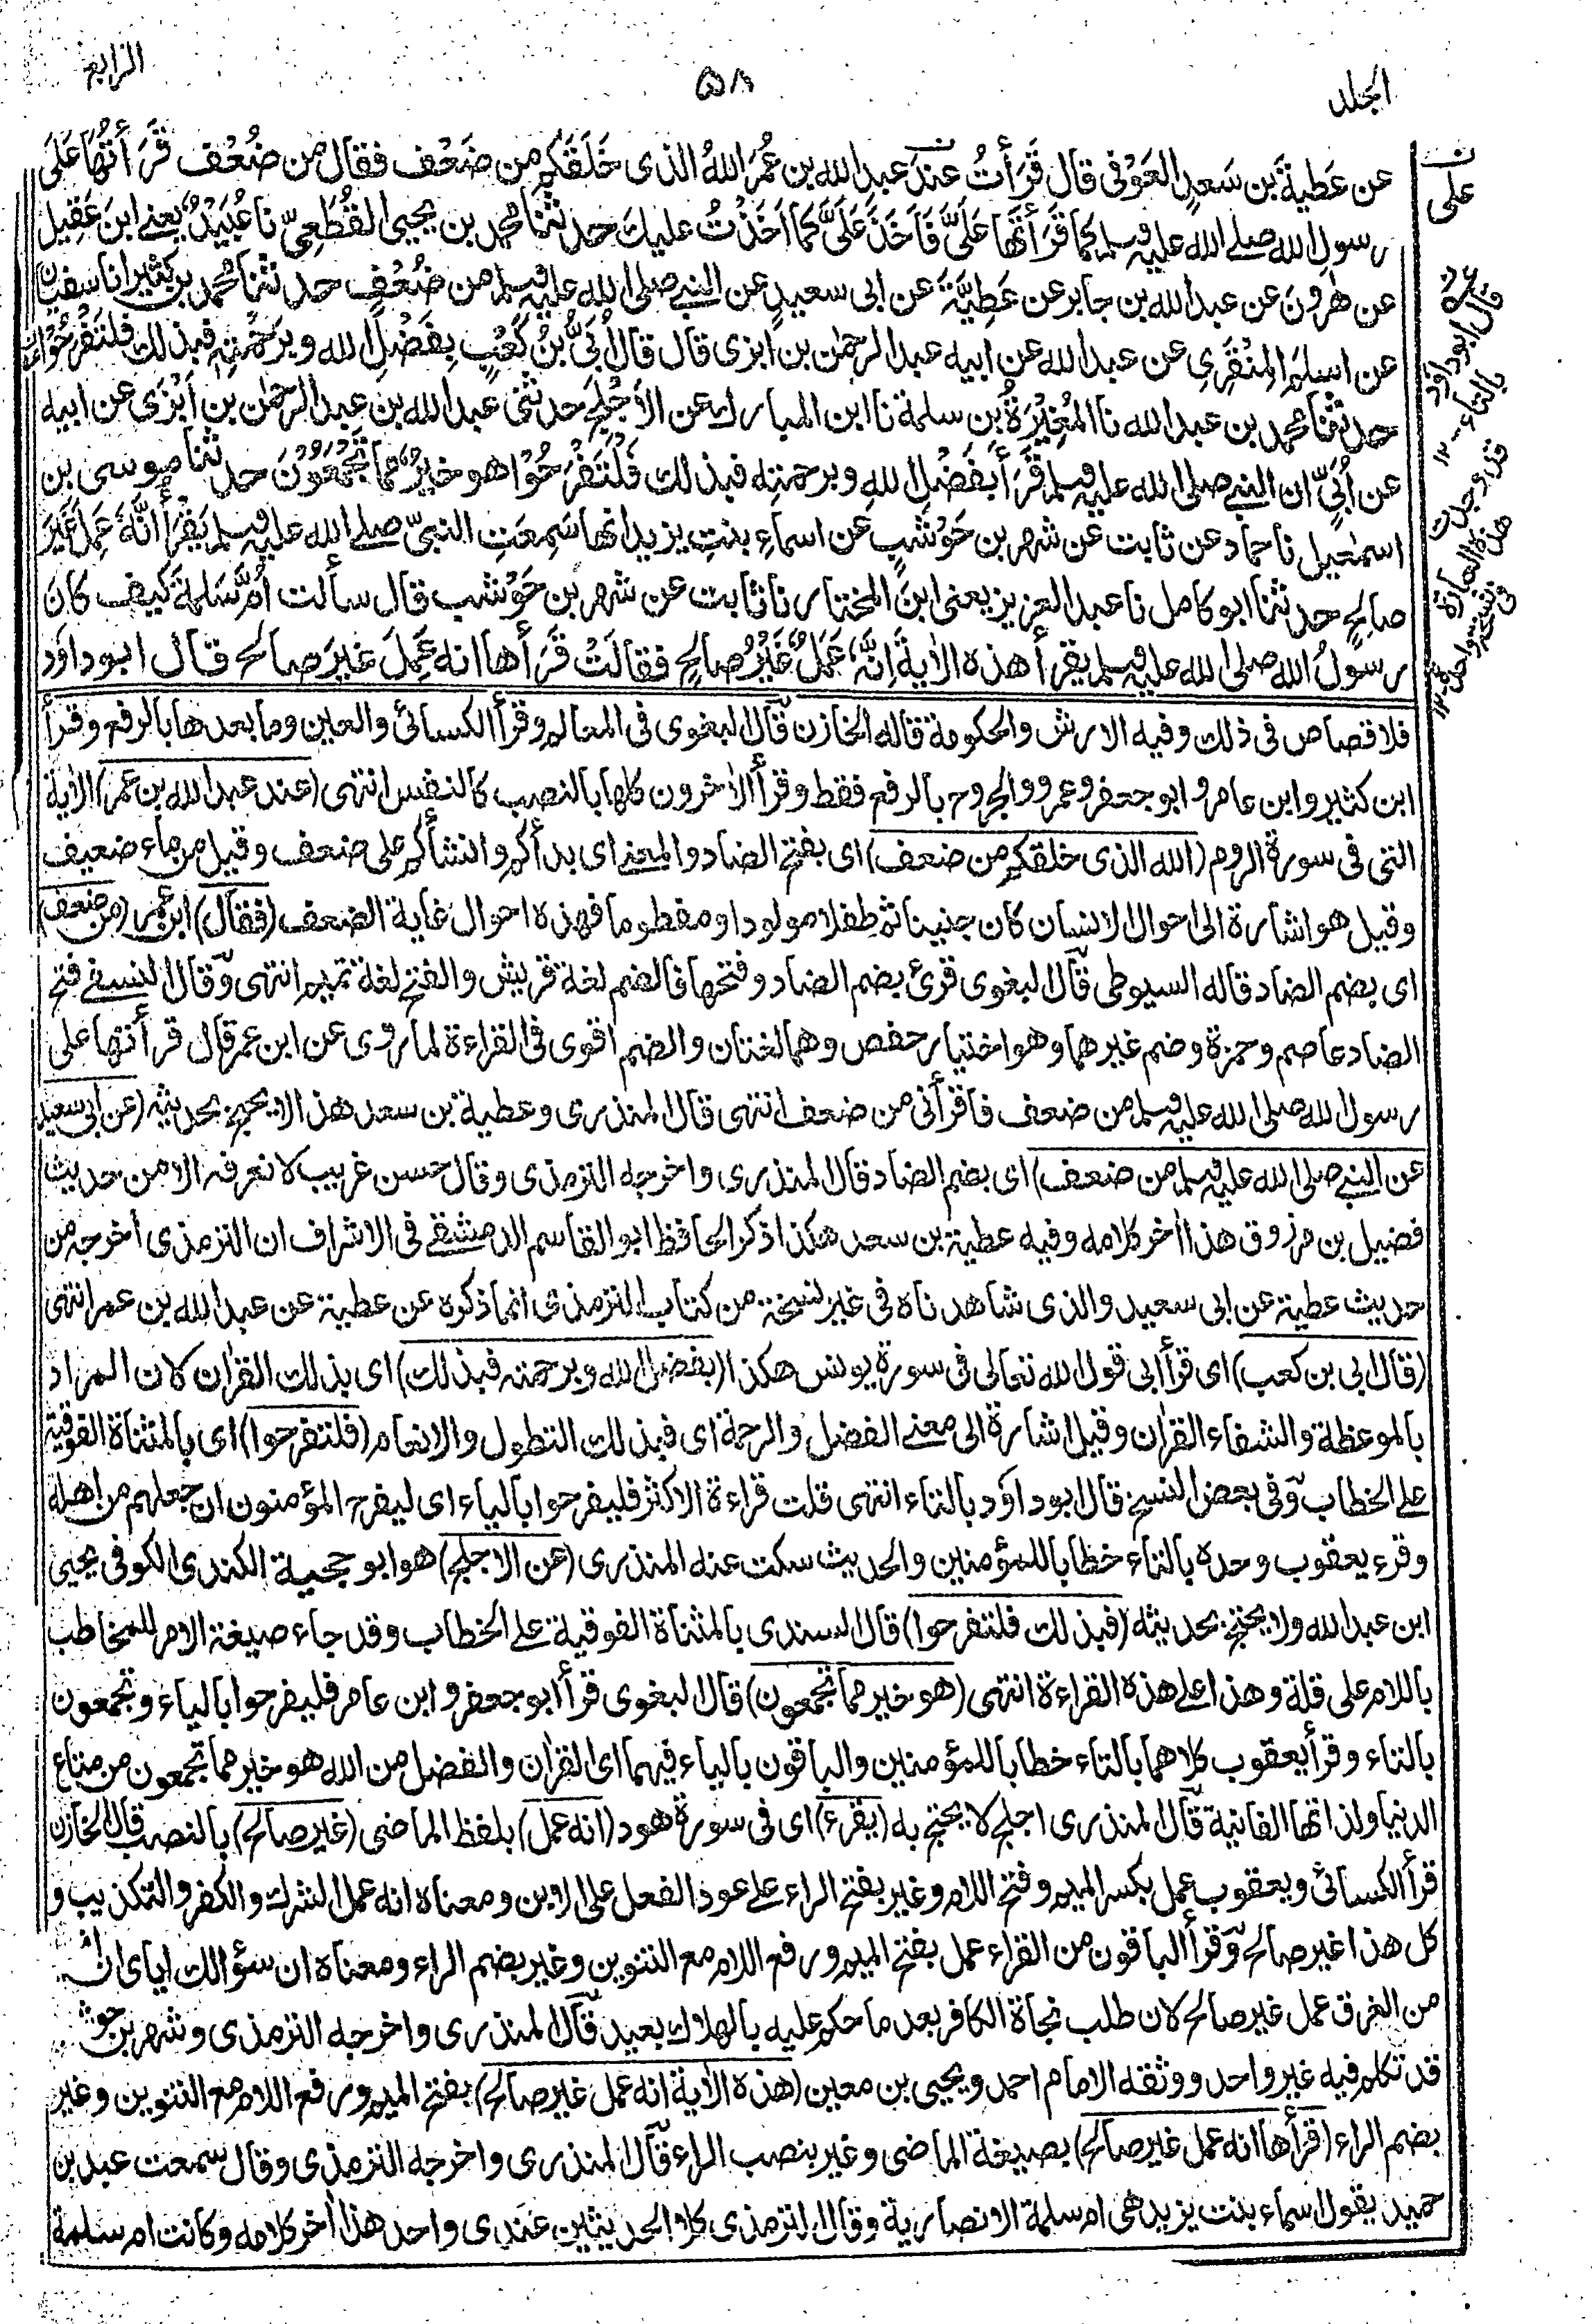 الجلد
٥٨
الرابع
عن عَطيةَ بن سَعدٍ العَوْفى قال قَرَأتُ عندَ عبدِ الله بن عُمَرَ اللهُ الذى خَلَقَكم من ضَعْفٍ فقال من ضُعْفٍ قَرَأتُهَا عَلَى
رسولِ الله صلے الله عليه وسلم كما قَرَأتَها عَلَىَّ فَاَخَذَ عَلَىَّ كما اَخَذتُ عليك حدثنا محمد بن يحيى القُطَعِىّ نا عُبَيْدٌ يعنے ابنَ عَقِيل
عن هٰرونَ عن عبد الله بن جابر عن عَطِيَّةَ عن ابى سعيدٍ عن النبے صلى الله عليه وسلم من ضُعْفٍ حدثنا محمد بن كثير انا سفيان
عن اسلمَ المِنْقَرِى عن عبد الله عن ابيه عبد الرحمٰن بن ابزى قال قال اُبَىُّ بنُ كَعْبٍ بِفَضْلِ الله وبرَحْمَتِهٖ فبذلك فلتَفْرَحُوْا
حدثنا محمد بن عبد الله نا المُغِيْرَةُ بن سلمة نا ابن المبارك عن الاَجْلَحِ حدثنى عبد الله بن عبد الرحمٰن بن اَبْزٰى عن ابيه
عن اُبَىٍّ ان النبے صلى الله عليه وسلم قَرَأ بفَضْلِ اللهِ وبرحمتِه فبذلك فَلْتَفْرَحُوْا هو خيرٌ مما تَجْمَعُوْنَ حدثنا موسى بن
اسمٰعيل نا حماد عن ثابت عن شهر بن حَوْشَبٍ عن اسماءِ بنتِ يزيد انها سَمِعَتِ النبىّ صلے الله عليه وسلم يَقْرَأ اِنَّهٗ عَمِلَ غَيْرَ
صالحٍ حدثنا ابو كامل نا عبد العزيز يعنى ابنَ المختار نا ثابت عن شهر بن حَوْشب قال سألت اُمَّ سَلَمةَ كيف كان
رسولُ الله صلى الله عليه وسلم يقرأ هذه الاٰيةَ اِنَّهٗ عَمَلٌ غَيْرُ صالحٍ فقالَتْ قَرَأها انه عَمِلَ غيرَ صالح قال ابو داود
فلا قصاص فى ذلك وفيه الارش والحكومة قاله الخازن قال البغوى فى المعالم وقرأ الكسائى والعين وما بعدها بالرفع وقرأ
ابن كثير وابن عامر وابو جعفر وعمرو والجروح بالرفع فقط وقرأ الاٰخرون كلها بالنصب كالنفس انتهى (عند عبد الله بن عمر) الاٰية
التى فى سورة الروم (الله الذى خلقكم من ضعف) اى بفتح الضاد والمعنے اى بدأكم وانشأكم على ضعف وقيل من ماء ضعيف
وقيل هو اشارة الى احوال الانسان كان جنينا ثم طفلا مولودا ومفطوما فهذه احوال غاية الضعف (فقال) ابن عمر (من ضعف)
اى بضم الضاد قاله السيوطى قال البغوى قرئ بضم الضاد وفتحها فالضم لغة قريش والفتح لغة تميم انتهى وقال النسفے فتح
الضاد عاصم وحمزة وضم غيرهما وهو اختيار حفص وهما لغتان والضم اقوى فى القراءة لما روى عن ابن عمر قال قرأتها على
رسول الله صلى الله عليه وسلم من ضعف فاقرأنى من ضعف انتهى قال المنذرى وعطية بن سعد هذا لا يحتج بحديثه (عن ابى سعيد
عن النبے صلى الله عليه وسلم من ضعف) اى بضم الضاد قال المنذرى واخرجه الترمذى وقال حسن غريب لا نعرفه الا من حديث
فضيل بن مرزوق هذا اٰخر كلامه وفيه عطية بن سعد هكذا ذكر الحافظ ابو القاسم الدمشقے فى الاشراف ان الترمذى أخرجه من
حديث عطية عن ابى سعيد والذى شاهدناه فى غير نسخة من كتاب الترمذى انما ذكره عن عطية عن عبد الله بن عمر انتهى
(قال ابى بن كعب) اى قرأ ابى قول الله تعالى فى سورة يونس هكذا (بفضل الله وبرحمته فبذلك) اى بذلك القراٰن كان المراد
بالموعظة والشفاء القراٰن وقيل اشارة الى معنے الفضل والرحمة اى فبذلك التطول والانعام (فلتفرحوا) اى بالمثناة الفوقية
علے الخطاب وفى بعض النسخ قال ابو داود بالتاء انتهى قلت قراءة الاكثر فليفرحوا بالياء اى ليفرح المؤمنون ان جعلهم من اهله
وقرء يعقوب وحده بالتاء خطابا للمؤمنين والحديث سكت عنه المنذرى (عن الاجلح) هو ابو حجية الكندى الكوفى يحيى
ابن عبد الله ولا يحتج بحديثه (فبذلك فلتفرحوا) قال السندى بالمثناة الفوقية علے الخطاب وقد جاء صيغة الامر للمخاطب
باللام على قلة وهذا علے هذه القراءة انتهى (هو خير مما تجمعون) قال البغوى قرأ ابو جعفر وابن عامر فليفرحوا بالياء وتجمعون
بالتاء وقرأ يعقوب كلاهما بالتاء خطابا للمؤمنين والباقون بالياء فيهما اى القراٰن والفضل من الله هو خير مما تجمعون من متاع
الدنيا ولذاتها الفانية قال المنذرى اجلح لا يحتج به (يقرء) اى فى سورة هود (انه عمل) بلفظ الماضى (غير صالح) بالنصب قال الخازن
قرأ الكسائى ويعقوب عمل بكسر الميم وفتح اللام وغير بفتح الراء علے عود الفعل على الابن ومعناه انه عمل الشرك والكفر والتكذيب و
كل هذا غير صالح وقرأ الباقون من القراء عمل بفتح الميم ورفع اللام مع التنوين وغير بضم الراء ومعناه ان سؤالك اياى
من الغرق عمل غير صالح لان طلب نجاة الكافر بعد ما حكم عليه بالهلاك بعيد قال المنذرى واخرجه الترمذى وشهر بن حوشب
قد تكلم فيه غير واحد ووثقه الامام احمد ويحيى بن معين (هذه الاٰية انه عمل غير صالح) بفتح الميم ورفع اللام مع التنوين وغير
بضم الراء (قرأها انه عمل غير صالح) بصيغة الماضى وغير بنصب الراء قال المنذرى واخرجه الترمذى وقال سمعت عبد بن
حميد يقول اسماء بنت يزيد هى ام سلمة الانصارية وقال الترمذى كلا الحديثين عندى واحد هذا اٰخر كلامه وكانت ام سلمة
ن
على
قال ابو داود
بالتاء ١٢
قد وجدت
هذه العبارة
فى نسخة واحدة ١٢